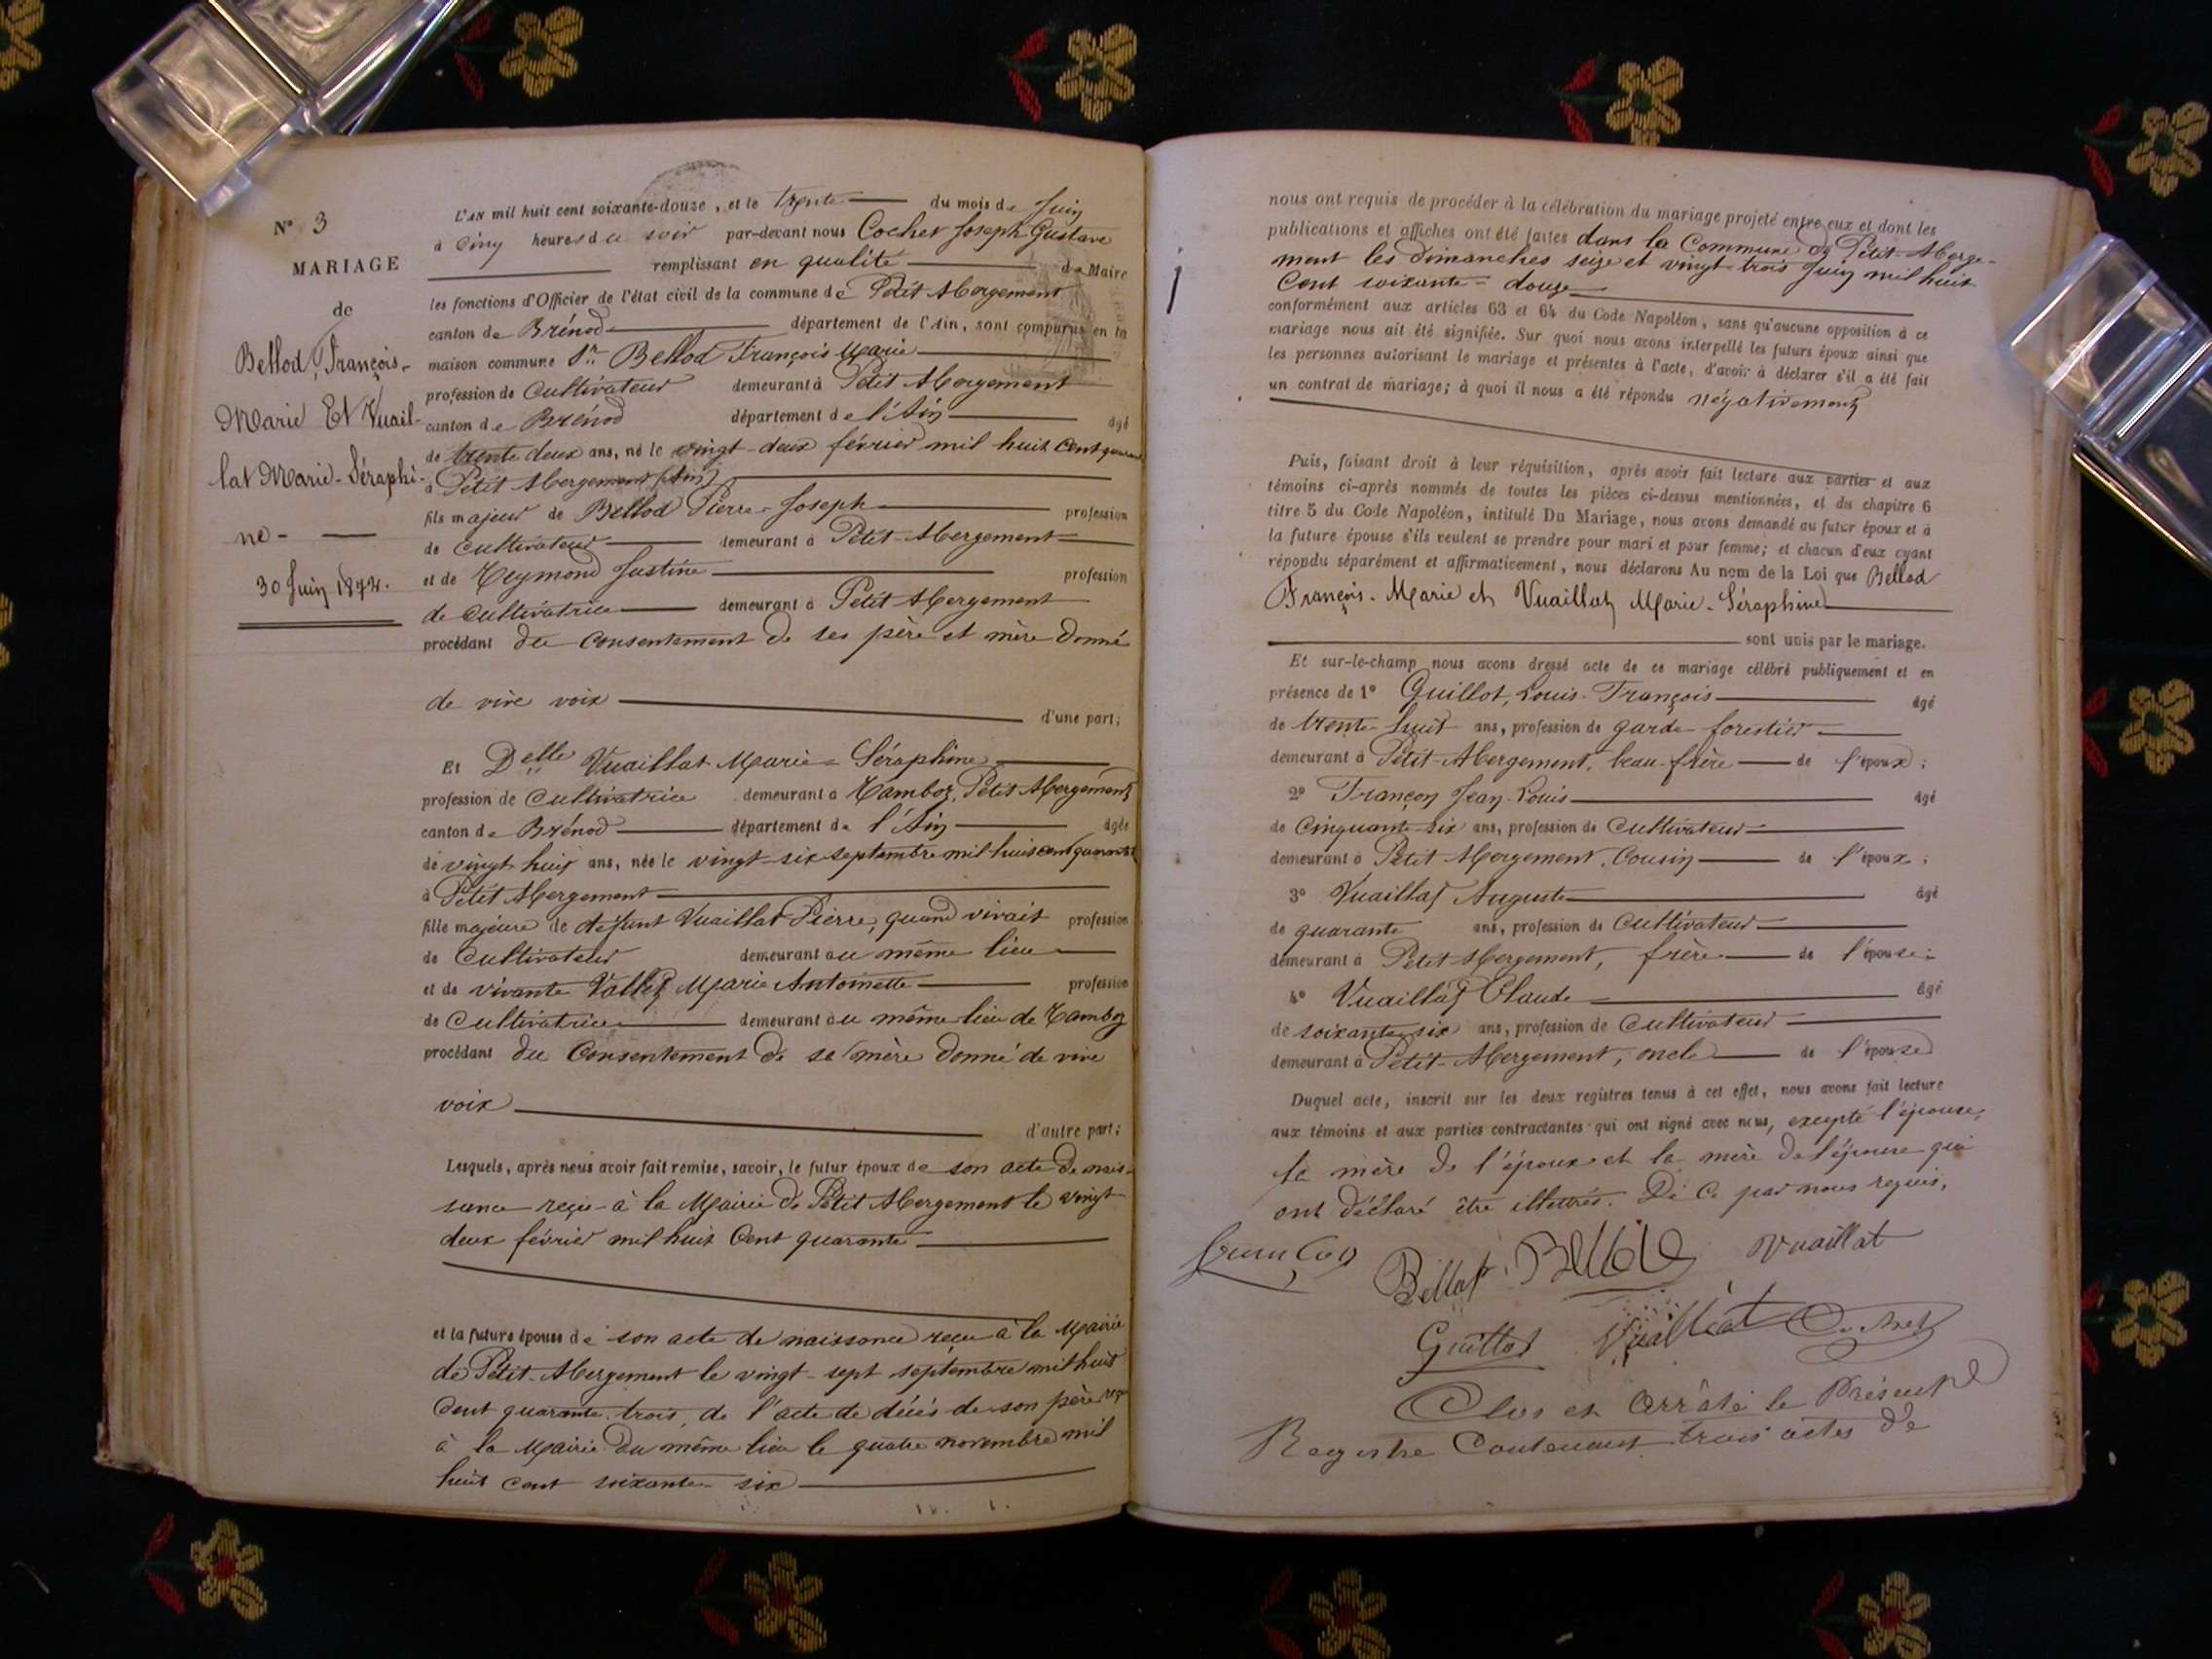 N° 3
MARIAGE
de
Bellod, François-
Marie Et Vuail-
lat Marie-Séraphi-
ne-
30 Juin 1872.
L'AN mil huit cent soixante-douze, et le trente du mois de Juin
à Cinq heures du soir par-devant nous Cochet Joseph Gustave
remplissant en qualité de Maire
les fonctions d'Officier de l'état civil de la commune de Petit Abergement
canton de Brénod département de l'Ain, sont comparus en la
maison commune Sr Bellod François Marie
profession de Cultivateur demeurant à Petit Abergement
canton de Brénod département de l'Ain âgé
de trente deux ans, né le vingt-deux février mil huit cent quarante
à Petit Abergement (Ain)
fils majeur de Bellod Pierre-Joseph profession
de cultivateur demeurant à Petit-Abergement
et de Reymond Justine profession
de cultivatrice demeurant à Petit Abergement
procédant du consentement de ses père et mère donné
de vive voix d'une part;
Et Delle Vuaillat Marie-Séraphine
profession de Cultivatrice demeurant à Petit Abergement
canton de Brénod département de l'Ain âgée
de vingt huit ans, née le vingt-six septembre mil huit cent quarante
à Petit Abergement
fille majeure de défunt Vuaillat Pierre, quand vivait profession
de Cultivateur demeurant au même lieu
et de vivante Vallet Marie Antoinette profession
de Cultivatrice demeurant au même lieu de
procédant du Consentement de sa mère donné de vive
voix d'autre part;
Lesquels, après nous avoir fait remise, savoir, le futur époux de son acte de nais-
sance reçu à la Mairie de Petit Abergement le vingt
deux février mil huit Cent quarante
et la future épouse de son acte de naissance reçu à la Mairie
de Petit-Abergement le vingt-sept septembre mil huit
Cent quarante trois, de l'acte de décès de son père reçu
à la Mairie du même lieu le quatre novembre mil
huit cent soixante-six
nous ont requis de procéder à la célébration du mariage projeté entre eux et dont les
publications et affiches ont été faites dans la Commune de Petit-Aberge-
ment les dimanches seize et vingt-trois Juin mil huit
Cent soixante-douze
conformément aux articles 63 et 64 du Code Napoléon, sans qu'aucune opposition à ce
mariage nous ait été signifiée. Sur quoi nous avons interpellé les futurs époux ainsi que
les personnes autorisant le mariage et présentes à l'acte, d'avoir à déclarer s'il a été fait
un contrat de mariage; à quoi il nous a été répondu négativement
Puis, faisant droit à leur réquisition, après avoir fait lecture aux parties et aux
témoins ci-après nommés de toutes les pièces ci-dessus mentionnées, et du chapitre 6
titre 5 du Code Napoléon, intitulé Du Mariage, nous avons demandé au futur époux et à
la future épouse s'ils veulent se prendre pour mari et pour femme; et chacun d'eux ayant
répondu séparément et affirmativement, nous déclarons Au nom de la Loi que Bellod
François-Marie et Vuaillat Marie-Séraphine
sont unis par le mariage.
Et sur-le-champ nous avons dressé acte de ce mariage célébré publiquement et en
présence de 1° Guillot, Louis-François âgé
de trente huit ans, profession de garde-forestier
demeurant à Petit-Abergement, beau-frère de l'époux;
2° Françon Jean-Louis âgé
de Cinquante-six ans, profession de Cultivateur
demeurant à Petit Abergement, Cousin de l'époux;
3° Vuaillat Auguste âgé
de quarante ans, profession de Cultivateur
demeurant à Petit Abergement, frère de l'épouse;
4° Vuaillat Claude âgé
de soixante-six ans, profession de Cultivateur
demeurant à Petit-Abergement, oncle de l'épouse
Duquel acte, inscrit sur les deux registres tenus à cet effet, nous avons fait lecture
aux témoins et aux parties contractantes qui ont signé avec nous, excepté l'épouse,
la mère de l'époux et la mère de l'épouse qui
ont déclaré être illettrés. De ce par nous requis.
Françon Bellod Bellod Vuaillat
Guillot Vuaillat Cochet
Clos et Arrêté le Présent
Registre Contenant trois actes de